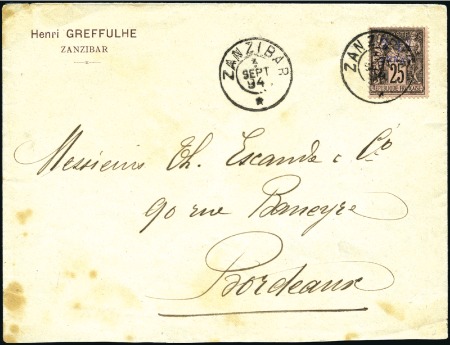 Henri GREFFULHE
ZANZIBAR
ZANZIBAR
2
SEPT
94
ZANZ
94
25
Messieurs Th. Escande & Cº
90 rue Baneyre
Bordeaux